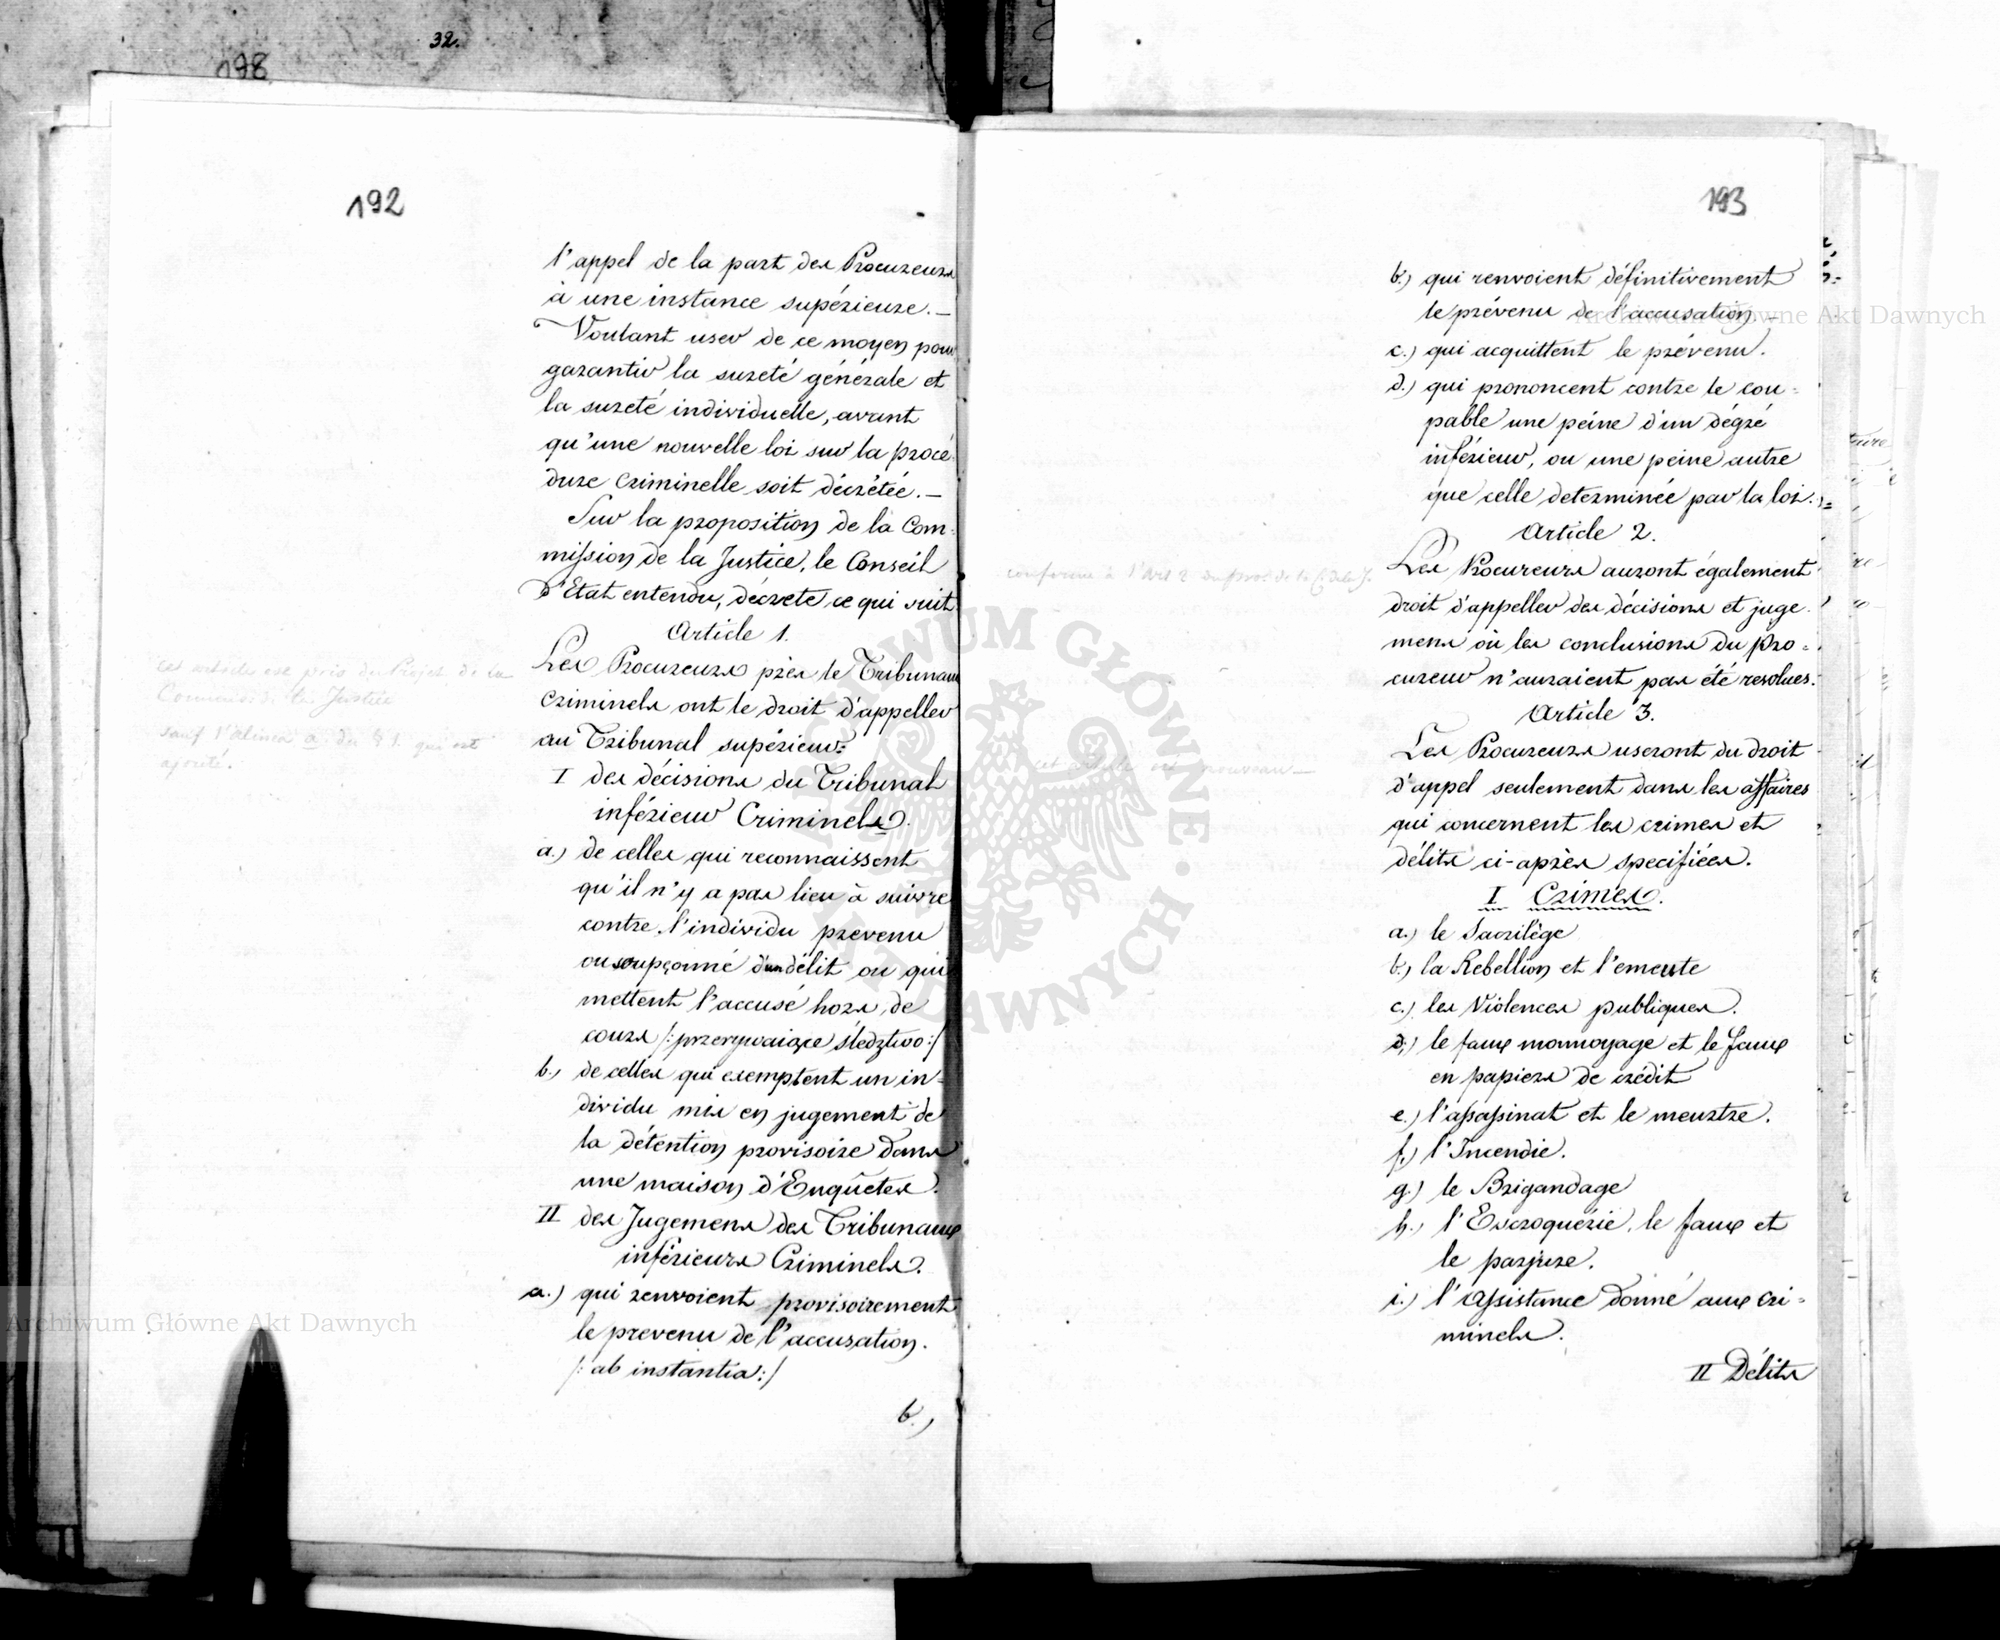 32.
198
192
l'appel de la part des Procureurs
à une instance supérieure. —
Voulant user de ce moyen pour
garantir la sureté générale et
la sureté individuelle, avant
qu'une nouvelle loi sur la procé-
dure criminelle soit décrétée. —
Sur la proposition de la Com-
mission de la Justice, le Conseil
d'Etat entendu, décrète ce qui suit
Article 1.
Les Procureurs près le Tribunaux
Criminels ont le droit d'appeller
au Tribunal supérieur:
I des décisions du Tribunal
inférieur Criminels.
a.) de celles qui reconnaissent
qu'il n'y a pas lieu à suivre
contre l'individu prevenu
ou soupçonné d'un délit ou qui
mettent l'accusé hors de
cours /: przerywaiące śledztwo :/
b., de celles qui exemptent un in-
dividu mis en jugement de
la détention provisoire dans
une maison d'Enquêtes.
II des Jugemens des Tribunaux
inférieurs Criminels.
a.) qui renvoient provisoirement
le prevenu de l'accusation.
/: ab instantia :/
b.,
cet article est pris du Projet de la
Commis. d. la Justice
sauf l'alinea a du § 1. qui est
ajouté.
193
b.) qui renvoient définitivement
le prévenu de l'accusation —
c.) qui acquittent le prévenu.
d.) qui prononcent contre le cou-
pable une peine d'un dégré
inférieur, ou une peine autre
que celle determinée par la loi.
Article 2.
Les Procureurs auront également
droit d'appeller des décisions et juge-
mens où les conclusions du Pro-
cureur n'auraient pas été resolues.
Article 3.
Les Procureurs useront du droit
d'appel seulement dans les affaires
qui concernent les crimes et
délits ci-après specifiées.
I Crimes.
a.) le Sacrilège
b., la Rebellion et l'emeute
c.) les Violences publiques.
d.) le faux monnoyage et le faux
en papiers de crédit
e.) l'assassinat et le meurtre.
f.) l'Incendie.
g.) le Brigandage
h., l'Escroquerie, le faux et
le parjure.
i.) l'assistance donné aux cri-
minels.
II Délits
conforme à l'Art 2 du proj. de la C. de la J.
cet article est nouveau —
Archiwum Główne Akt Dawnych
Archiwum Główne Akt Dawnych
ARCHIWUM GŁÓWNE AKT DAWNYCH